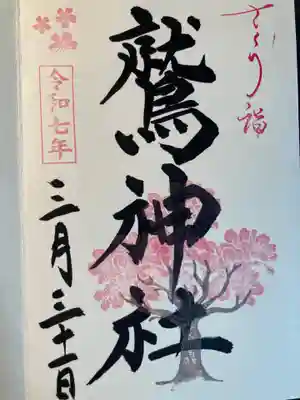 さくら詣
鷲神社
令和七年
三月三十一日